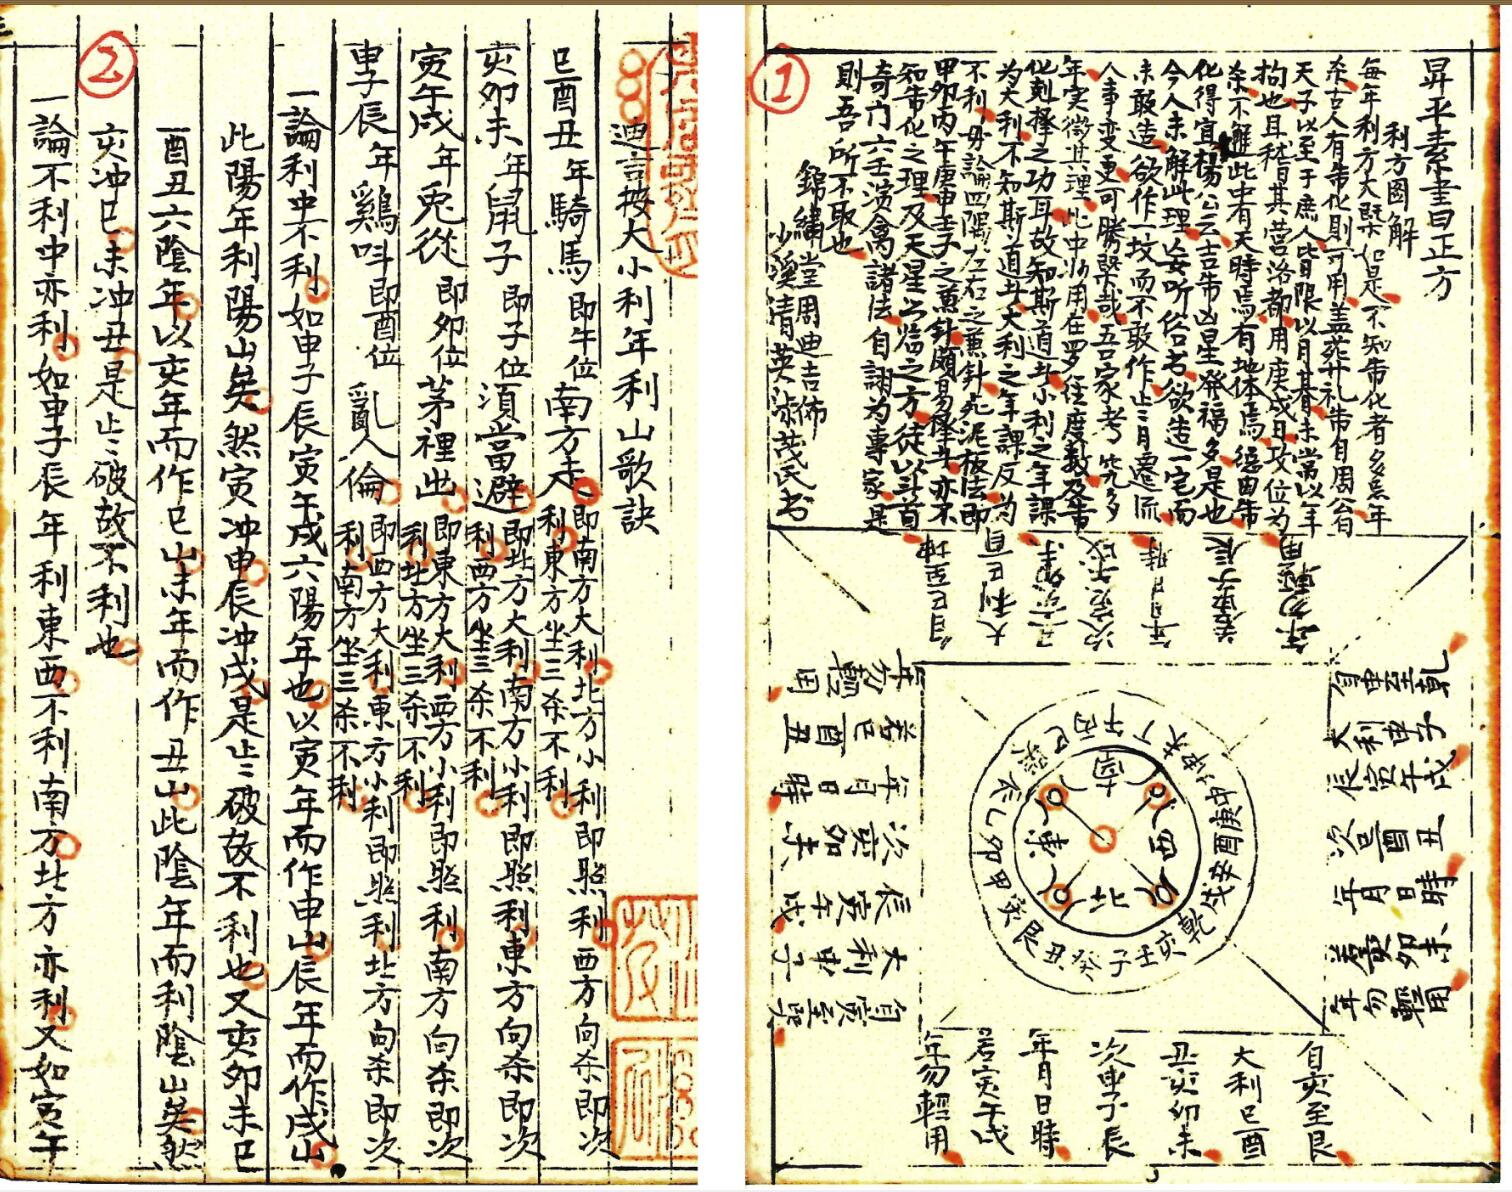 昇平素書曰正方
利方圖解
每年利方大既如是不知制化者多忌年
杀古人有制化則可用盖葬礼制自周公
天子以至于庶人皆限以月暮未嘗以年
拘也且稽其营洛都用庚戌日攻位為
杀不避此中有天時焉有地体焉總由制
化得宜楊公云吉制凶星発福多是也
今人未解此理妄听俗书欲造一宅而
未敢造欲作一坟而不敢作止三月遷流
人事变更可勝槩哉吾家考究多
年实徵其理此中作用在罗径度數及制
化剋擇之功耳故知斯道斗小利之年課
为大利不知斯道斗大利之年課反为
不利毋論四隅左右之兼針宛泥板法即
甲卯丙午庚申壬子之兼針頗易擇斗亦不
知制化之理及天星照临之方徒以斗首
奇门六壬演禽諸法自詡为專家是
則吾所不取也
錦繡堂周迪吉佈
少溪清英添茂氏書
自巳至坤
大利巳
丑亥卯未
次寅午戌
年月日時
若申子辰
年勿輕用
自申至乾
大利申子
辰寅午戌
次巳酉丑
年月日時
若亥卯未
年勿輕用
自亥至艮
大利巳酉
丑亥卯未
次申子辰
年月日時
若寅午戌
年勿輕用
自寅至巽
大利申子
辰寅午戌
次亥卯未
年月日時
若巳酉丑
年勿輕用
南
西
北
東
丙午丁未坤申庚酉辛戌乾亥壬子癸丑艮寅甲卯乙辰巽巳
迪吉按大小利年利山歌訣
巳酉丑年騎馬即午位南方走即南方大利北方小利即照利西方向杀即次
利東方坐三杀不利
亥卯未年鼠子即子位須當避即北方大利南方小利即照利東方向杀即次
利西方坐三杀不利
寅午戌年兎從即卯位茅裡出即東方大利西方小利即照利南方向杀即次
利北方坐三杀不利
申子辰年鷄呌即酉位亂人倫即西方大利東方小利即照利北方向杀即次
利南方坐三杀不利
一論利中不利如申子辰寅午戌六陽年也以寅年而作申山辰年而作戌山
此陽年利陽山矣然寅冲申辰冲戌是歩歩破故不利也又亥卯未巳
酉丑六陰年以亥年而作巳山未年而作丑山此陰年而利陰山矣然
亥冲巳未冲丑是歩歩破故不利也
一論不利中亦利如申子辰年利東西不利南方北方亦利又如寅午